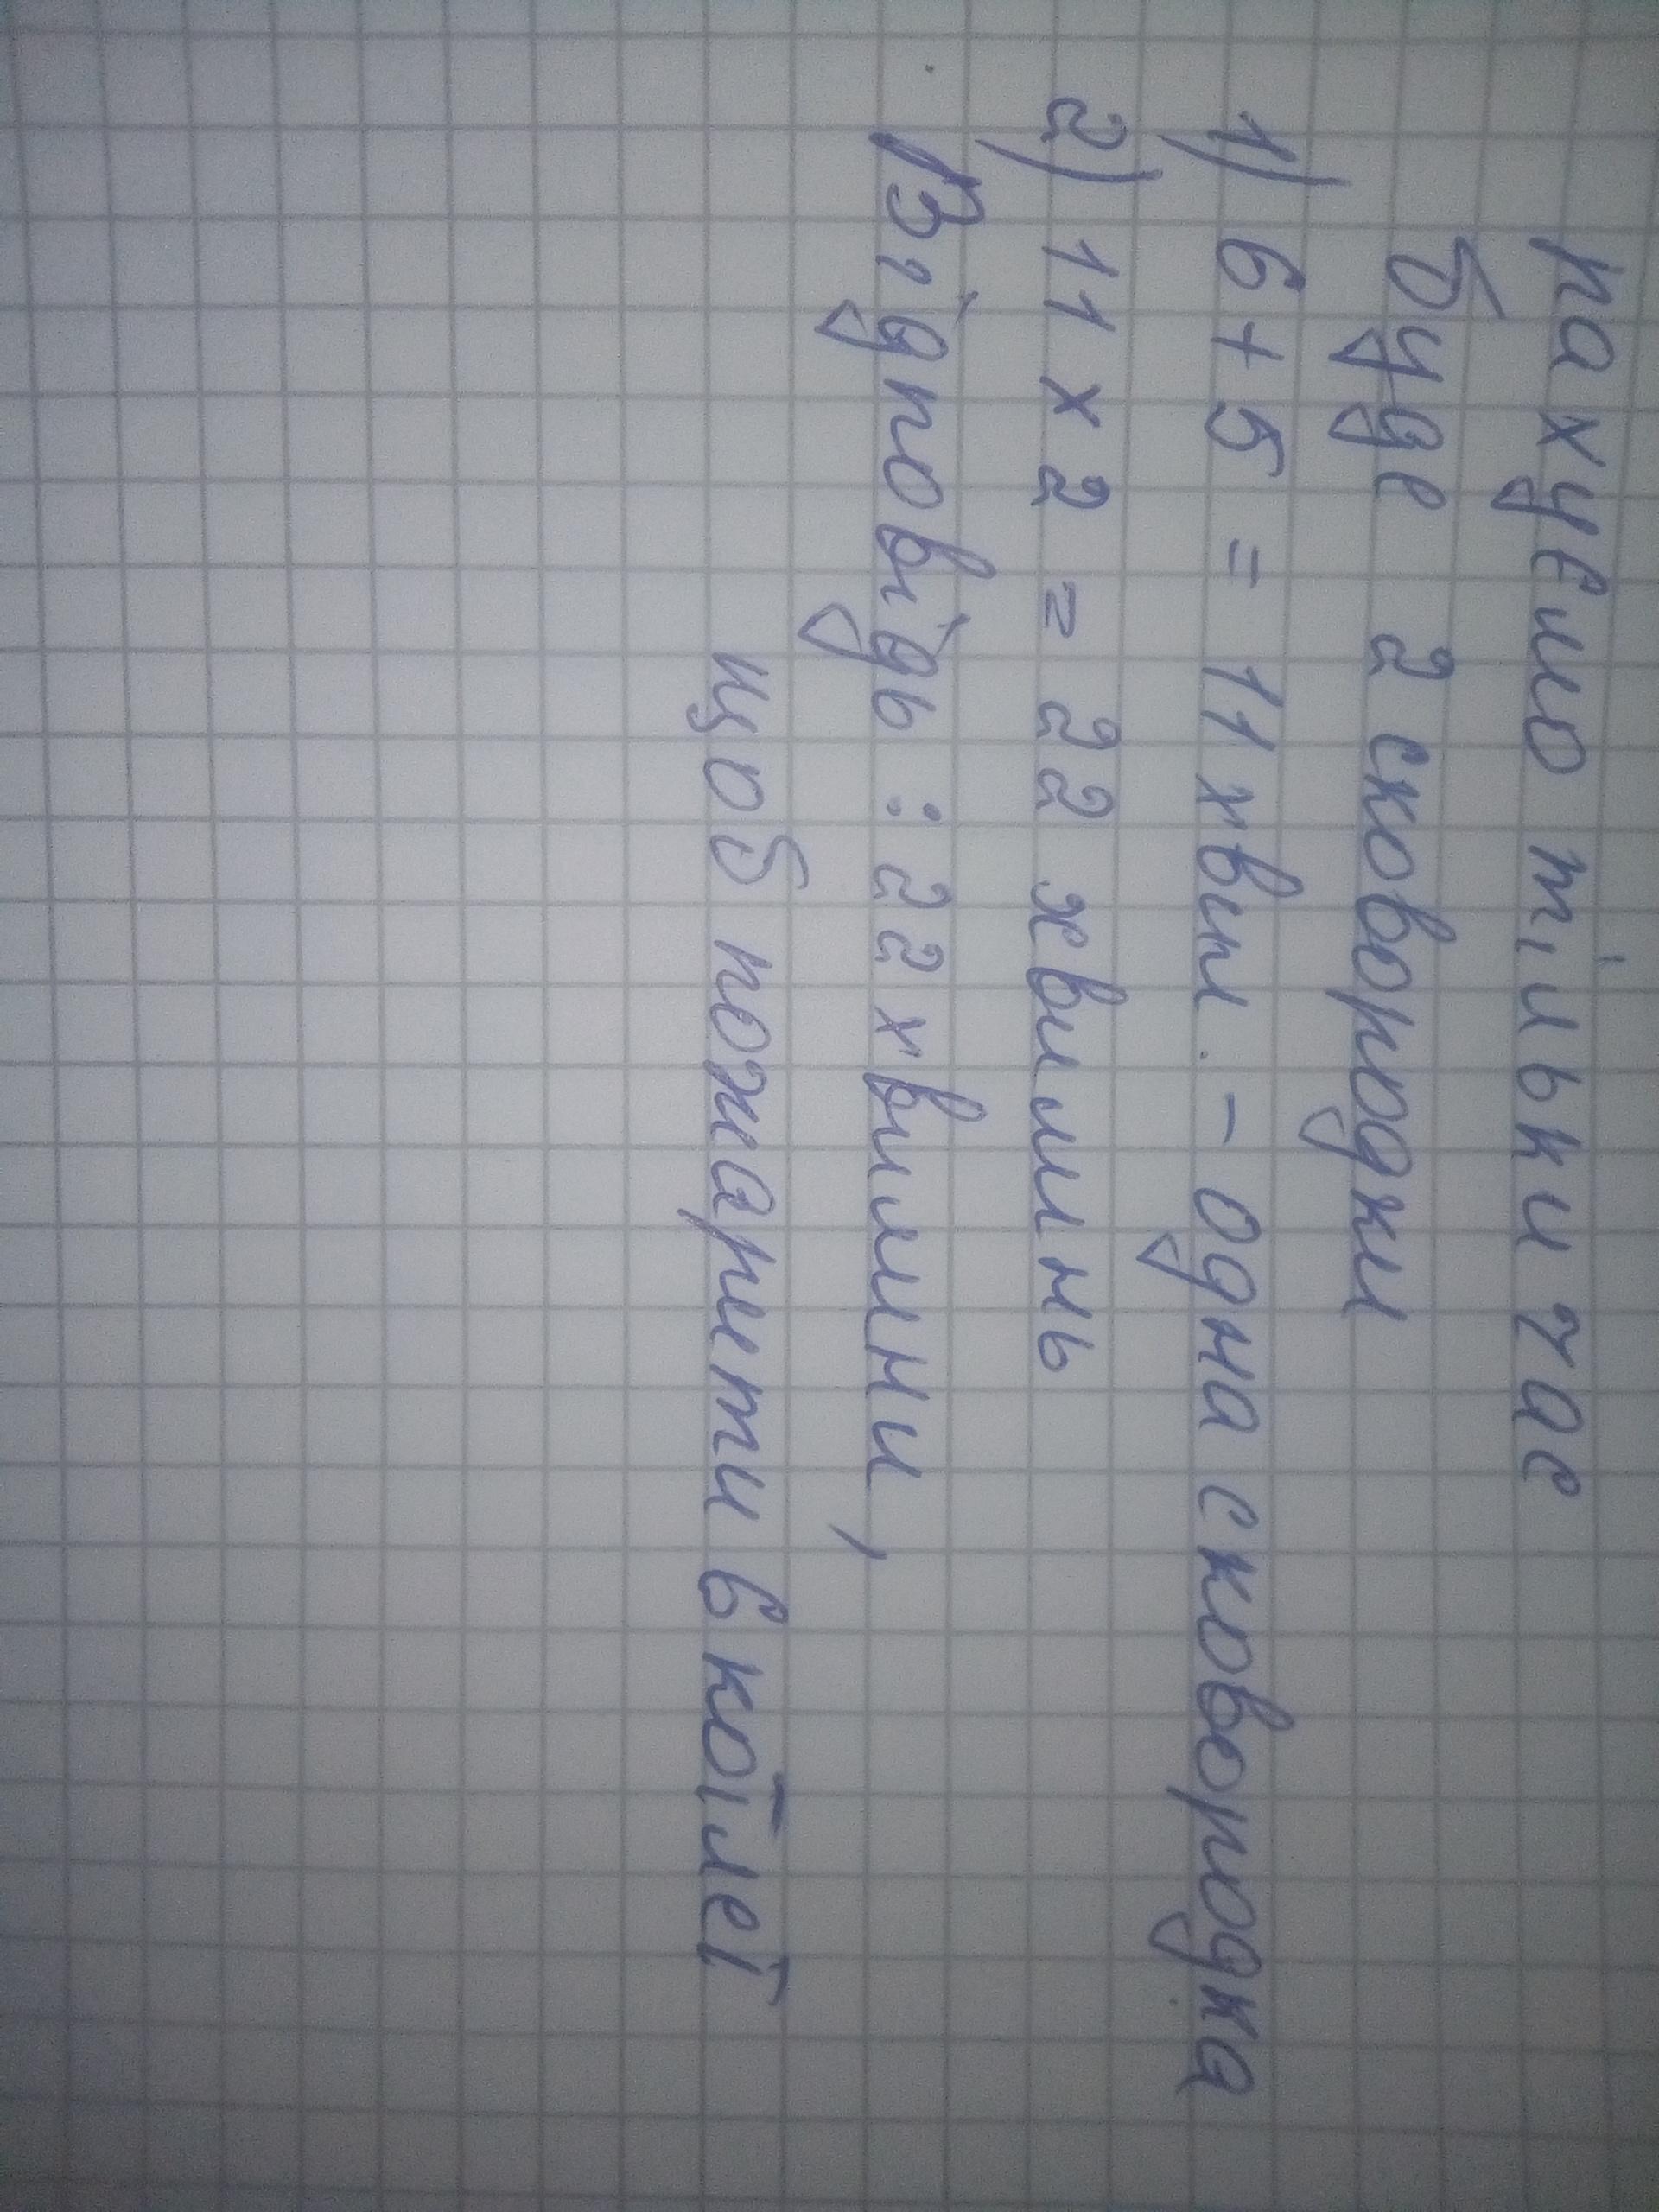 рахуємо тільки час
буде 2 сковородки
1) 6 + 5 = 11 хвил. - одна сковородка
2) 11 х 2 = 22 хвилинь
Відповідь : 22 хвилини,
щоб пожарити 6 котлет